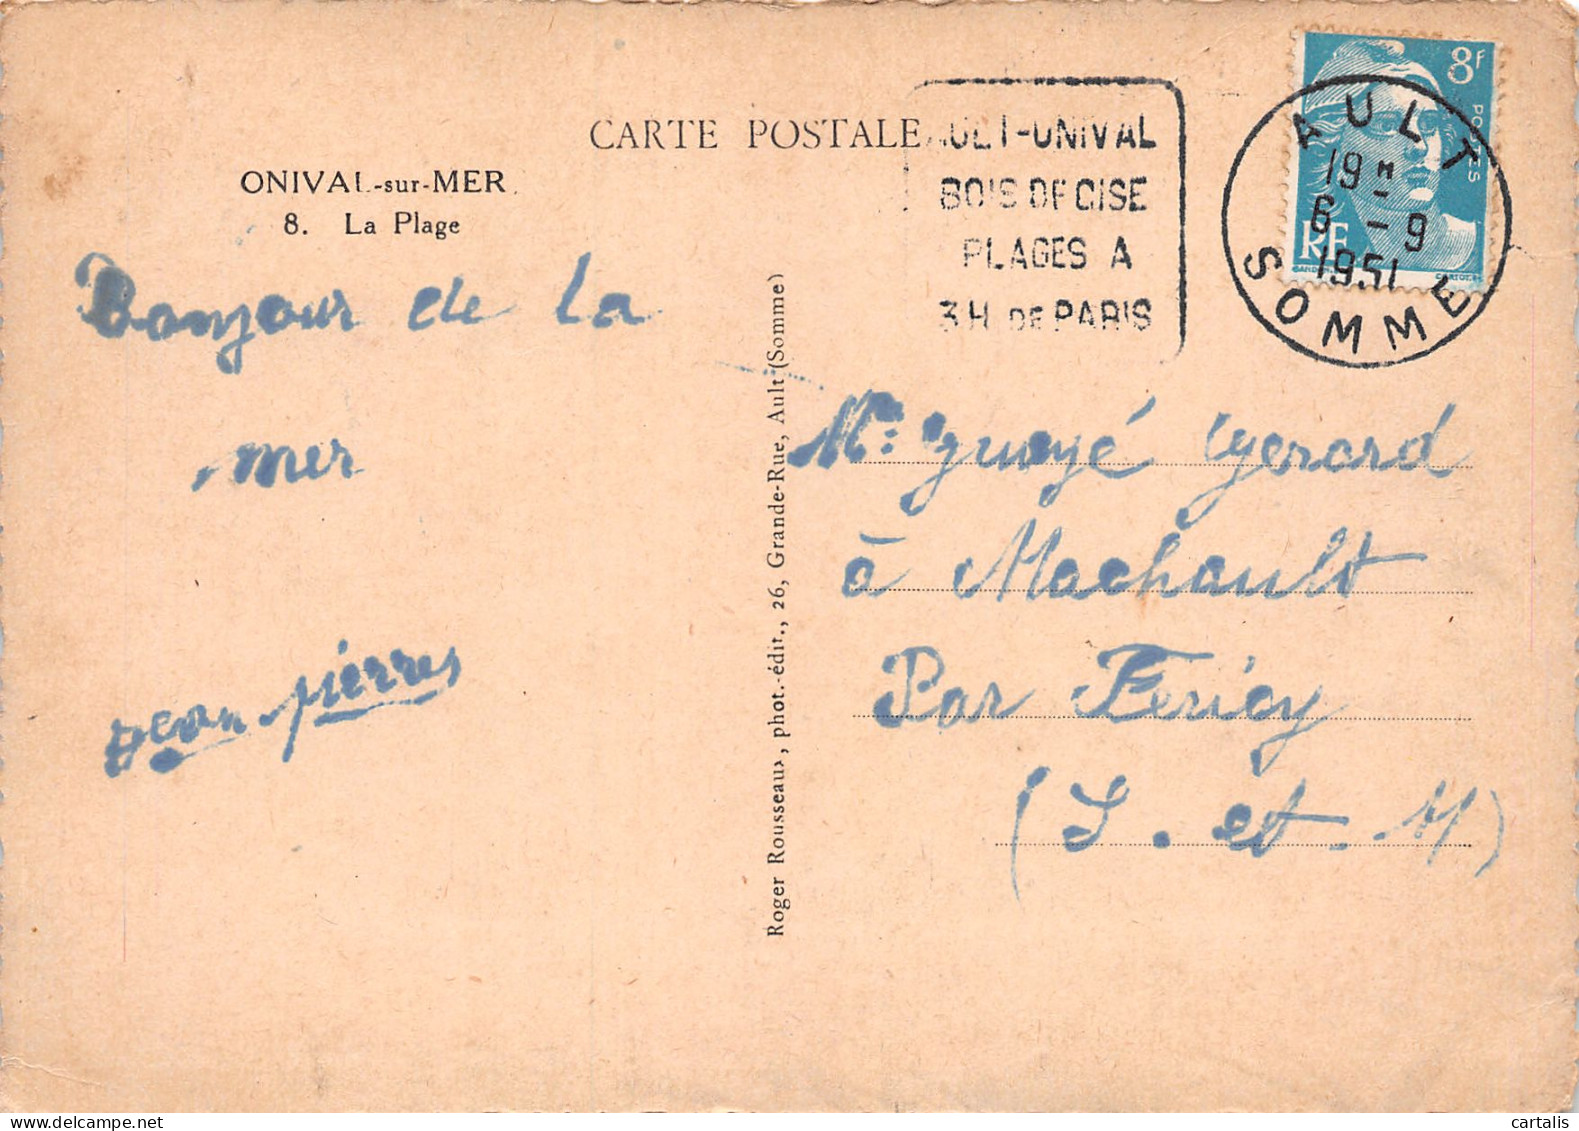 CARTE POSTALE
ONIVAL-sur-MER
8. La Plage
Bonjour de la
mer
Jean pierres
Roger Rousseau, phot.-édit., 26, Grande-Rue, Ault (Somme)
AULT-ONIVAL
BOIS DE CISE
PLAGES A
3H DE PARIS
8F
POSTES
RF
AULT
19H
6-9
1951
SOMME
Mr: guoyé Gerard
à Machault
Par Fericy
(S. et. M)
delcampe.net
cartalis